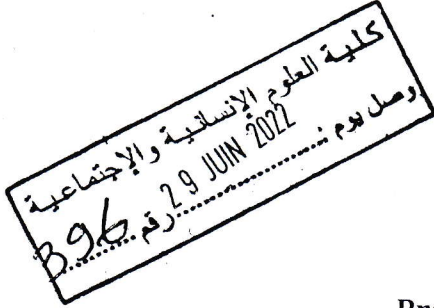 كلية العلوم الإنسانية والإجتماعية
وصل يوم : 29 JUIN 2022
رقم 396